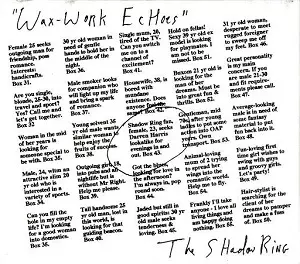 "Wax-Work Echoes"
Female 25 seeks
outgoing man for
friendship, pos.
romance.
Interests,
handicrafts.
Box 31.
Are you single,
blonde, 25-28, into
travel and sport?
Yes? Call me and
let's get together.
Box 32
Woman in the mid
of her years is
looking for
someone special to
be with. Box 35.
Male, 24, with an
attractive
20 yr old who is
interested in a
variety of sports.
Box 36.
Can you fill the
hole in my empty
life? I'm looking
for a good woman
into domestics.
Box 38.
30 yr old woman in
need of gentle
hands to hold her in
the middle of the
night.
Box 36.
Male smoker looks
for companion who
will light up my life
and bring a spark
of romance.
Box 37.
Young servient 35
yr old male wants
similar woman to
help enjoy the
finer things in life.
Box 38.
Outgoing girl, 18,
into pubs and all
nightlife but is
without Mr Right.
Help me please.
Box 39.
Tall handsome 25
yr old man, lost in
this world, is
looking for that
guiding beacon.
Box 40.
Single man, 20,
tired of the TV.
Can you switch
me on to a
channel of
excitement?
Box 41.
Housewife, 38, is
bored with
mundane
existence. Does
anyone
Box 42.
Shadow Ring fan,
female, 23, seeks
Darren Harris
lookalike for
evenings in and
out. Box 43.
Got the blues,
looking for love in
the afternoon?
I'm always in, pop
round soon.
Box 44.
Jaded but still in
good spirits: 30 yr
old male seeks
tenderness and
loving. Box 45.
Hold on fellas!
Sexy 39 yr old ex
model is looking
for playmates. I
am not to be
missed. Box 51.
Buxom 21 yr old is
looking for the
man of her
dreams. Must be
great fun &
thrills. Box 52.
Gentleman, mid
40s after young
ladies to put some
action into OAP
living. Own
transport.
Box 53.
Animal-loving
man of 2 trying
to spread her
wings into the
romantic world.
Help me to fly.
Box 54.
Frankly I'll take
anyone - I love all
living things and
am happy doing
nothing. Box 55.
31 yr old woman,
desperate to meet
rugged foreigner
to sweep me off
my feet. Box 46.
Great personality
my main
concern. If you
are male 21-30
and fit require-
ments please
call. Box 47.
Average-looking
man is in need of
some fantasy
material to put
fun back into it.
Box 48.
Fun-loving first
time girl wishes to
swing with guys
and groovy girls.
Let's party!
Box 49.
Hair-stylist is
searching for the
client of her
dreams to pamper
and make a fuss
of. Box 50.
The Shadow Ring